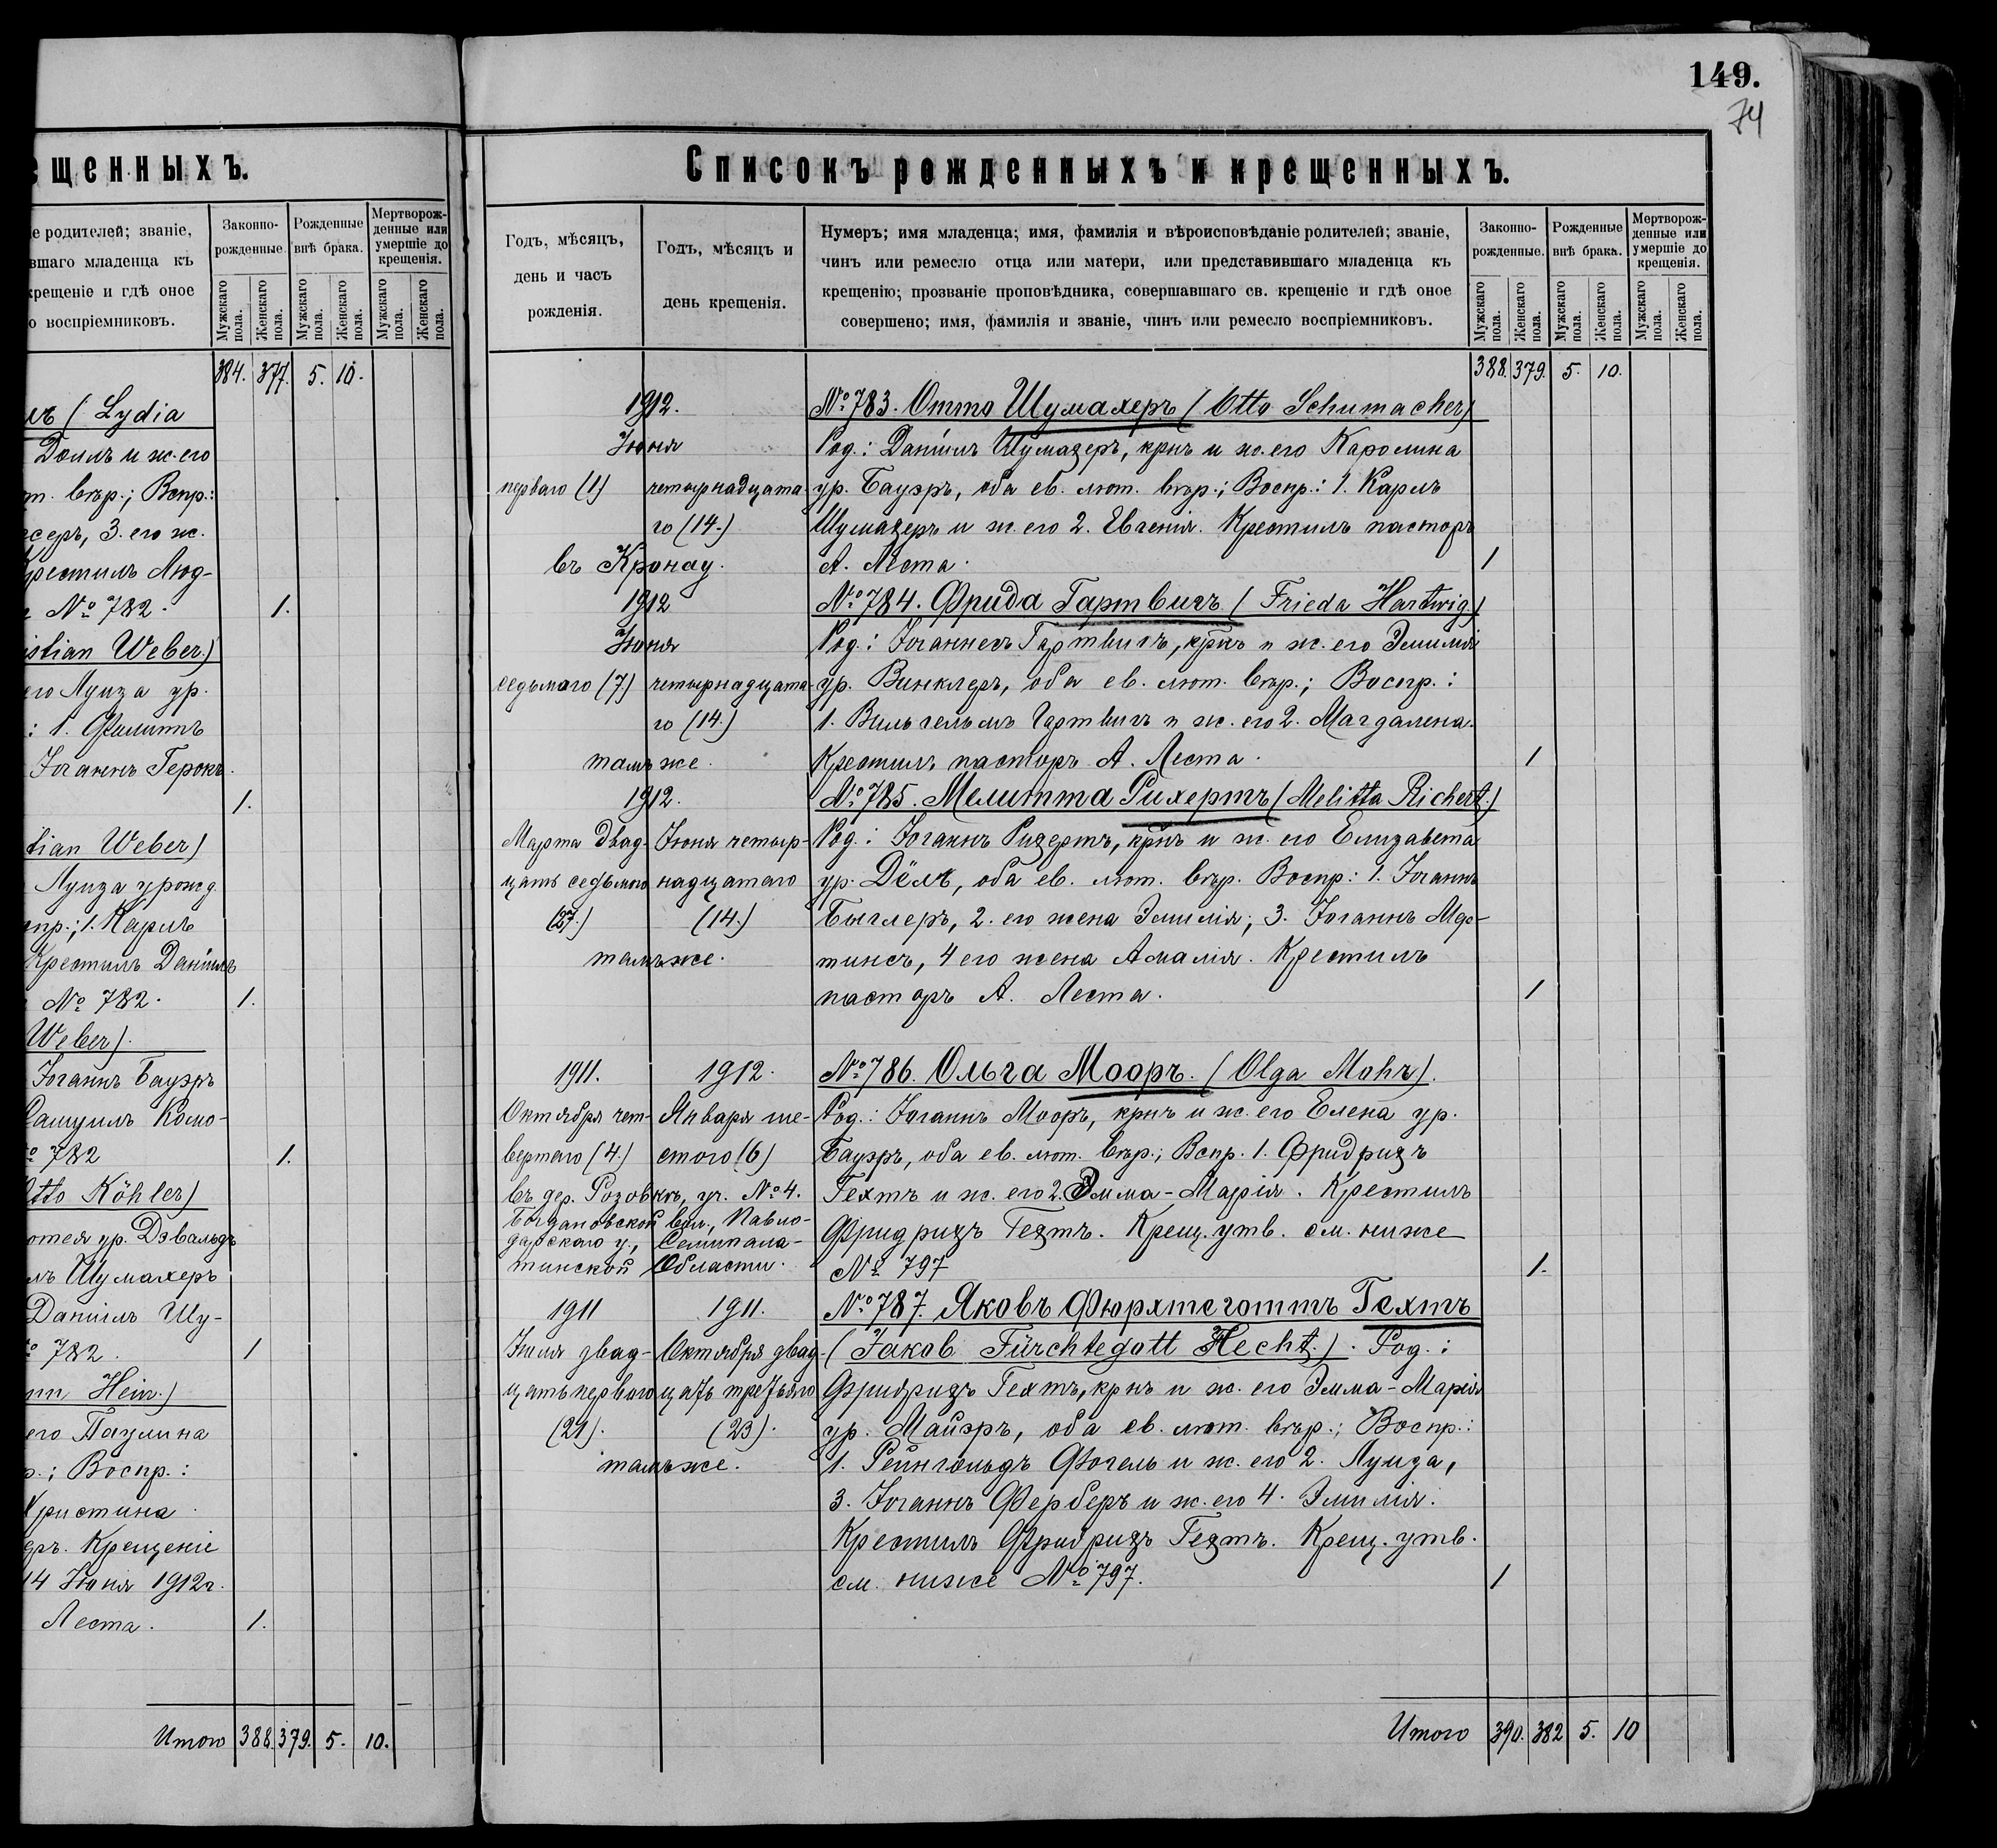 ещенныхъ.
е родителей; званіе,
вшаго младенца къ
крещеніе и гдѣ оное
о воспріемниковъ.
Законно-
рожденные.
Рожденные
внѣ брака.
Мертворож-
денные или
умершіе до
крещенія.
Мужскаго пола.
Женскаго пола.
Мужскаго пола.
Женскаго пола.
Мужскаго пола.
Женскаго пола.
384. 377. 5. 10.
лъ (Lydia
Доилъ и ж. его
т. вѣр.; Вспр.:
ссеръ, 3. его ж.
Крестилъ Люд-
№ 782. 1.
istian Weber.)
его Луиза ур.
: 1. Филиппъ
Іоганнъ Герокъ.
1.
tian Weber)
Луиза урожд.
пр.; 1. Карлъ
Крестилъ Даніилъ
№ 782. 1.
Weber).
Іоганнъ Бауэръ
Самуилъ Комо-
№ 782 1.
Otto Köhler)
отея ур. Дэвальдъ
лъ Шумахеръ
Даніилъ Шу-
№ 782. 1
nn Hein.)
его Паулина
р.; Воспр.:
Христина
еръ. Крещеніе
14 Іюня 1912 г.
Леста. 1.
Итого 388. 379. 5. 10.
149.
74
Списокъ рожденныхъ и крещенныхъ.
Годъ, мѣсяцъ,
день и часъ
рожденія.
Годъ, мѣсяцъ и
день крещенія.
Нумеръ; имя младенца; имя, фамилія и вѣроисповѣданіе родителей; званіе,
чинъ или ремесло отца или матери, или представившаго младенца къ
крещенію; прозваніе проповѣдника, совершавшаго св. крещеніе и гдѣ оное
совершено; имя, фамилія и званіе, чинъ или ремесло воспріемниковъ.
Законно-
рожденные.
Рожденные
внѣ брака.
Мертворож-
денные или
умершіе до
крещенія.
Мужскаго пола.
Женскаго пола.
Мужскаго пола.
Женскаго пола.
Мужскаго пола.
Женскаго пола.
388. 379. 5. 10.
1912. №783. Отто Шумахеръ (Otto Schumacher)
Іюня Род.: Даніилъ Шумахеръ, крнъ и ж. его Каролина
перваго (1) четырнадцата- ур. Бауэръ, оба ев. лют. вѣр.; Воспр.: 1. Карлъ
го (14.) Шумахеръ и ж. его 2. Евгенія. Крестилъ пасторъ
въ Кронау. А. Леста. 1
1912 №784. Фрида Гартвигъ (Frieda Hartwig)
Іюня Род.: Іоганнесъ Гартвигъ, крнъ и ж. его Эмилія
седьмого (7.) четырнадцата- ур. Винклеръ, оба ев. лют. вѣр.; Воспр.:
го (14.) 1. Вильгельмъ Гартвигъ и ж. его 2. Магдалена.
тамъ же. Крестилъ пасторъ А. Леста. 1
1912. №785. Мелитта Рихертъ (Melitta Richert.)
Марта двад- Іюня четыр- Род.: Іоганнъ Рихертъ, крнъ и ж. его Елизавета
цать седьмого надцатаго ур. Дёлъ, оба ев. лют. вѣр. Воспр.: 1. Іоганнъ
(27.) (14.) Быглеръ, 2. его жена Эмилія; 3. Іоганнъ Мар-
тамъ же. тинсъ, 4 его жена Амалія. Крестилъ
пасторъ А. Леста. 1
1911. 1912. №786. Ольга Мооръ. (Olga Mohr).
Октября чет- Января ше- Род.: Іоганнъ Мооръ, крнъ и ж. его Елена ур.
вертаго (4.) стого (6) Бауэръ, оба ев. лют. вѣр.; Вспр. 1. Фридрихъ
въ дер. Розовкѣ, уч. №4. Гехтъ и ж. его 2. Эмма-Марія. Крестилъ
Богдановской вол., Павло-
дарскаго у., Семипала- Фридрихъ Гехтъ. Крещ. утв. см. ниже
тинской Области. № 797 1.
1911 1911. №787. Яковъ Фюрхтеготтъ Гехтъ
Іюля двад- Октября двад- (Jakob Fürchtegott Hecht.). Род.:
цать перваго цать третьяго Фридрихъ Гехтъ, крнъ и ж. его Эмма-Марія
(21). (23). ур. Майэръ, оба ев. лют. вѣр.; Воспр.:
тамъ же. 1. Рейнгольдъ Фогель и ж. его 2. Луиза,
3. Іоганнъ Ферберъ и ж. его 4. Эмилія.
Крестилъ Фридрихъ Гехтъ. Крещ. утв.
см. ниже №797. 1
Итого 390. 382 5. 10